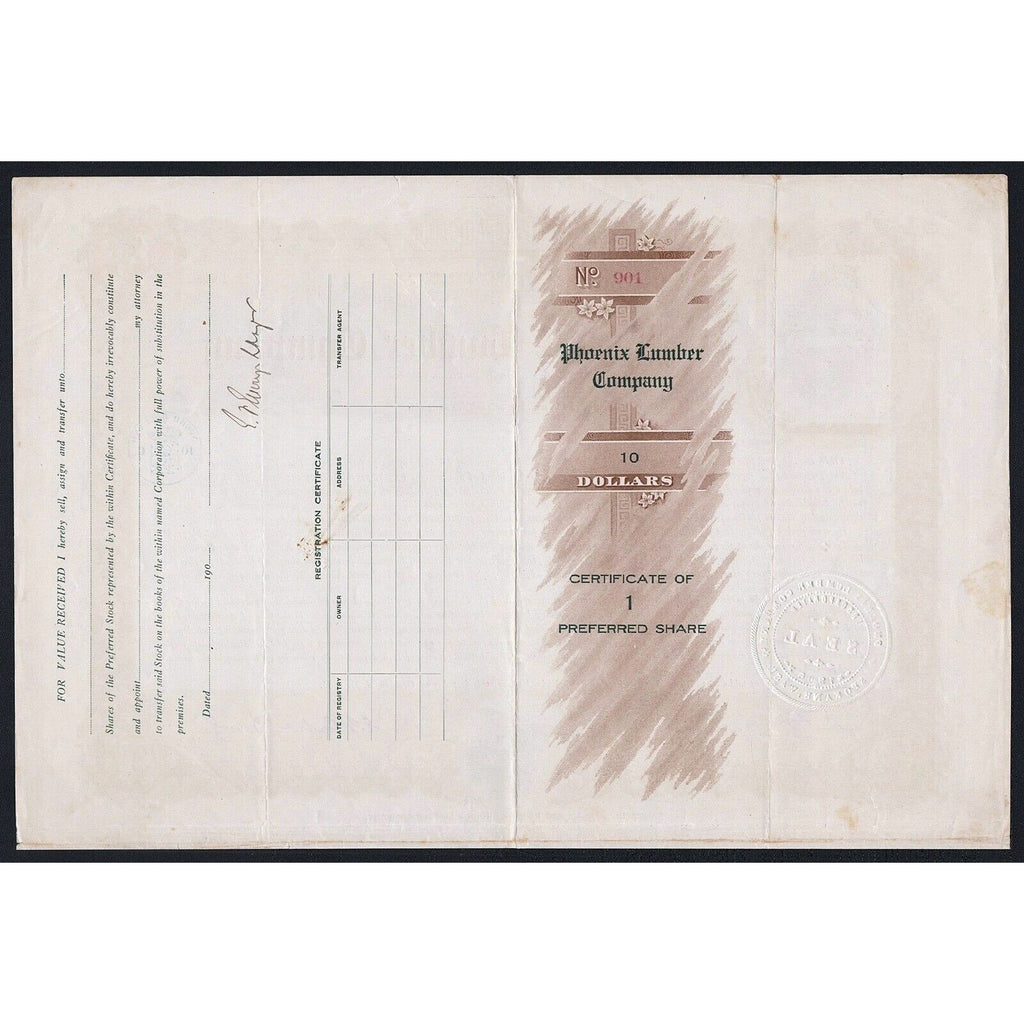 FOR VALUE RECEIVED I hereby sell, assign and transfer unto
Shares of the Preferred Stock represented by the within Certificate, and do hereby irrevocably constitute
and appoint my attorney
to transfer said Stock on the books of the within named Corporation with full power of substitution in the
premises.
Dated 190
REGISTRATION CERTIFICATE
DATE OF REGISTRY OWNER ADDRESS TRANSFER AGENT
No. 901
Phoenix Lumber
Company
10
DOLLARS
CERTIFICATE OF
1
PREFERRED SHARE
SEAL